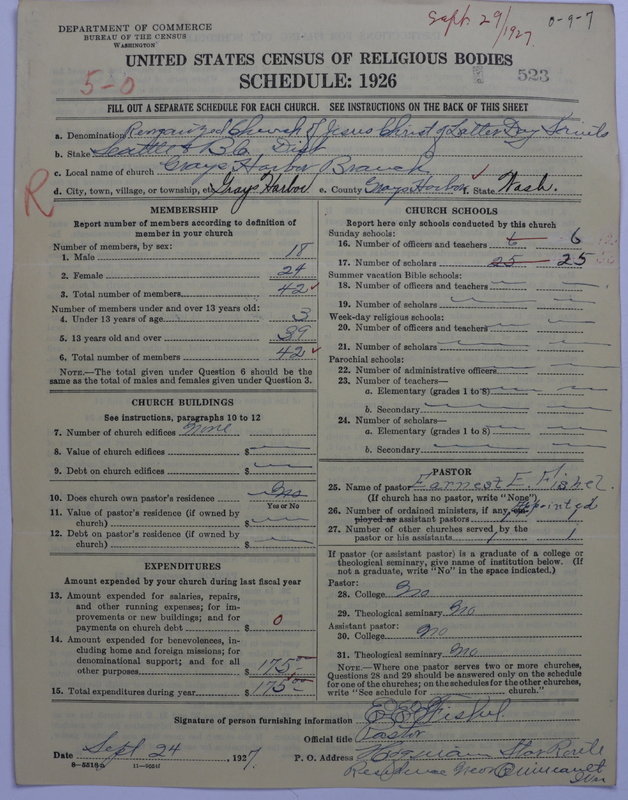 DEPARTMENT OF COMMERCE
BUREAU OF THE CENSUS
WASHINGTON
Sept. 29/1927
0-9-7
5-0
UNITED STATES CENSUS OF RELIGIOUS BODIES
SCHEDULE: 1926
523
FILL OUT A SEPARATE SCHEDULE FOR EACH CHURCH. SEE INSTRUCTIONS ON THE BACK OF THIS SHEET
a. Denomination Reorganized Church of Jesus Christ of Latter Day Saints
b. Stake Seattle & B.C. Dist
c. Local name of church Grays Harbor Branch
d. City, town, village, or township, etc. Grays Harbor e. County Grays Harbor f. State Wash.
R
MEMBERSHIP
Report number of members according to definition of member in your church
Number of members, by sex:
1. Male 18
2. Female 24
3. Total number of members 42
Number of members under and over 13 years old:
4. Under 13 years of age 3
5. 13 years old and over 39
6. Total number of members 42
NOTE.—The total given under Question 6 should be
same as the total of males and females given under Question 3.
CHURCH BUILDINGS
See instructions, paragraphs 10 to 12
7. Number of church edifices None
8. Value of church edifices $
9. Debt on church edifices $
10. Does church own pastor's residence No
Yes or No
11. Value of pastor's residence (if owned by
church) $
12. Debt on pastor's residence (if owned by
church) $
EXPENDITURES
Amount expended by your church during last fiscal year
13. Amount expended for salaries, repairs,
and other running expenses; for im-
provements or new buildings; and for
payments on church debt $ 0
14. Amount expended for benevolences, in-
cluding home and foreign missions; for
denominational support; and for all
other purposes 175.00
15. Total expenditures during year $ 175.00
CHURCH SCHOOLS
Report here only schools conducted by this church
Sunday schools:
16. Number of officers and teachers 6 6
17. Number of scholars 25 25
Summer vacation Bible schools:
18. Number of officers and teachers
19. Number of scholars
Week-day religious schools:
20. Number of officers and teachers
21. Number of scholars
Parochial schools:
22. Number of administrative officers
23. Number of teachers—
a. Elementary (grades 1 to 8)
b. Secondary
24. Number of scholars—
a. Elementary (grades 1 to 8)
b. Secondary
PASTOR
25. Name of pastor Earnest E. Fishel.
(If church has no pastor, write "None")
26. Number of ordained ministers, if any, em- appointed
ployed as assistant pastors
27. Number of other churches served by the
pastor or his assistants 1
If pastor (or assistant pastor) is a graduate of a college or
theological seminary, give name of institution below. (If
not a graduate, write "No" in the space indicated.)
Pastor:
28. College No
29. Theological seminary No
Assistant pastor:
30. College No
31. Theological seminary No
NOTE.—Where one pastor serves two or more churches,
Questions 28 and 29 should be answered only on the schedule
for one of the churches; on the schedules for the other churches,
write "See schedule for church."
Signature of person furnishing information E E Fishel
Official title Pastor
Date Sept 24, 1927 P. O. Address Hoquiam Star Route
8—5518a 11—9931
Residence Near Quineault